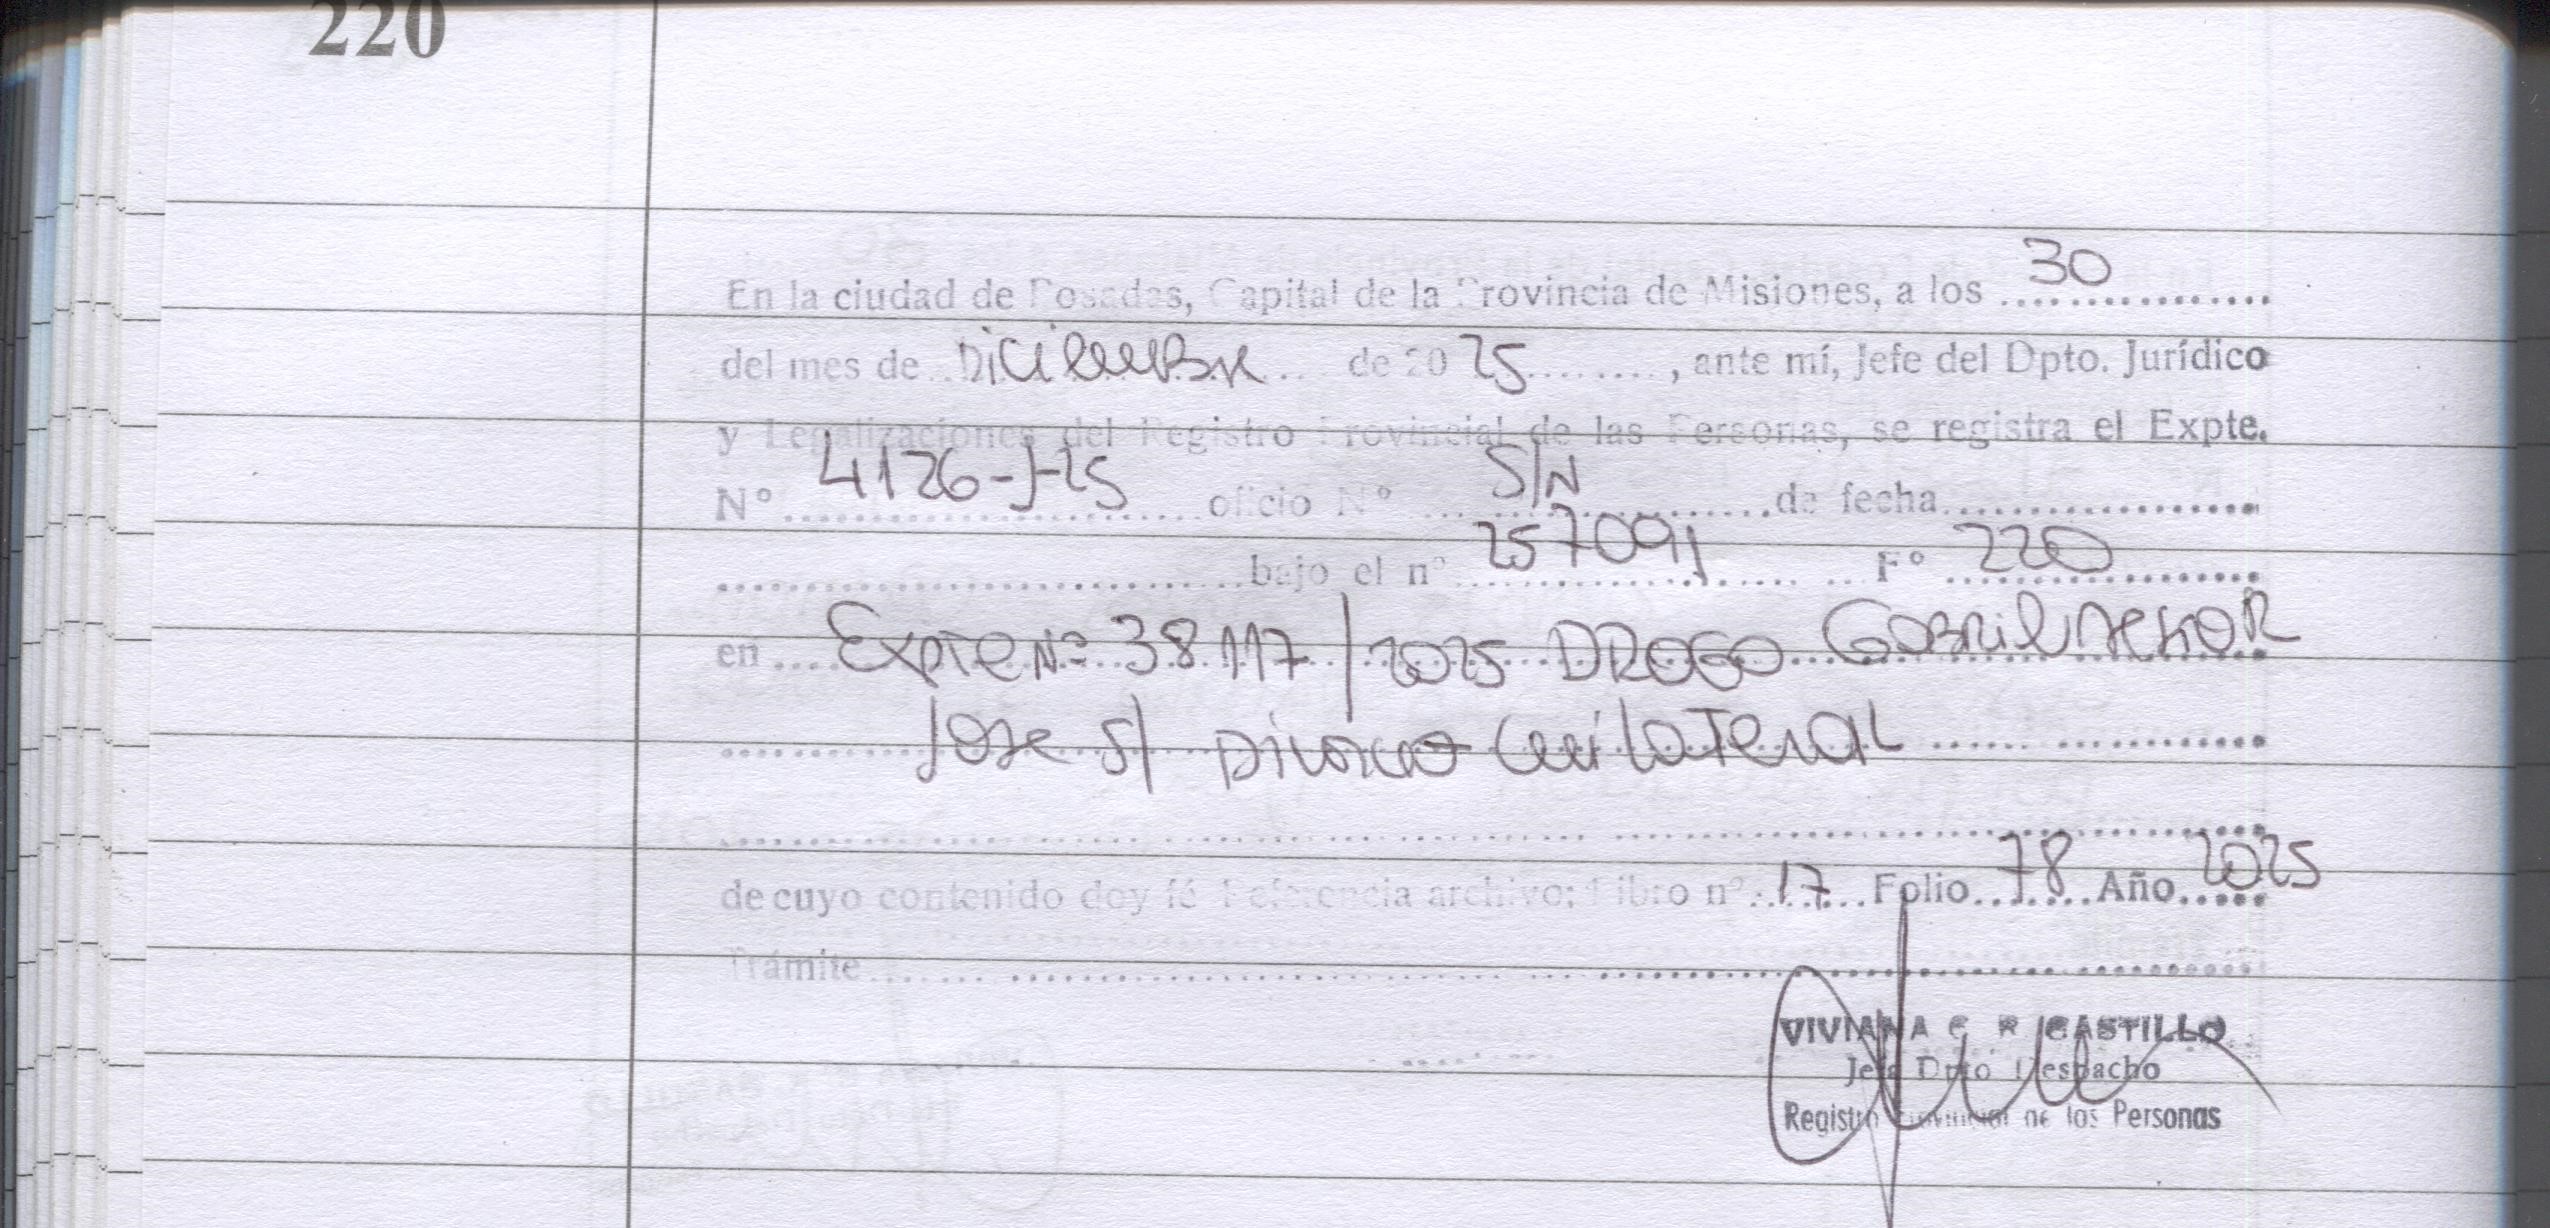 220
En la ciudad de Posadas, Capital de la Provincia de Misiones, a los 30
del mes de Diciembre de 2025, ante mí, Jefe del Dpto. Jurídico
y Legalizaciones del Registro Provincial de las Personas, se registra el Expte.
Nº 4126-J-25 oficio Nº S/N de fecha
bajo el nº 257091 Fº 220
en Expte Nº 38.117/2025 DROGO Gabriel
Jose S/ Divorcio Unilateral
de cuyo contenido doy fé Referencia archivo: Libro nº 17 Folio 78 Año 2025
Trámite
VIVIANA C R CASTILLO
Jefa Dpto Despacho
Registro Provincial de los Personas